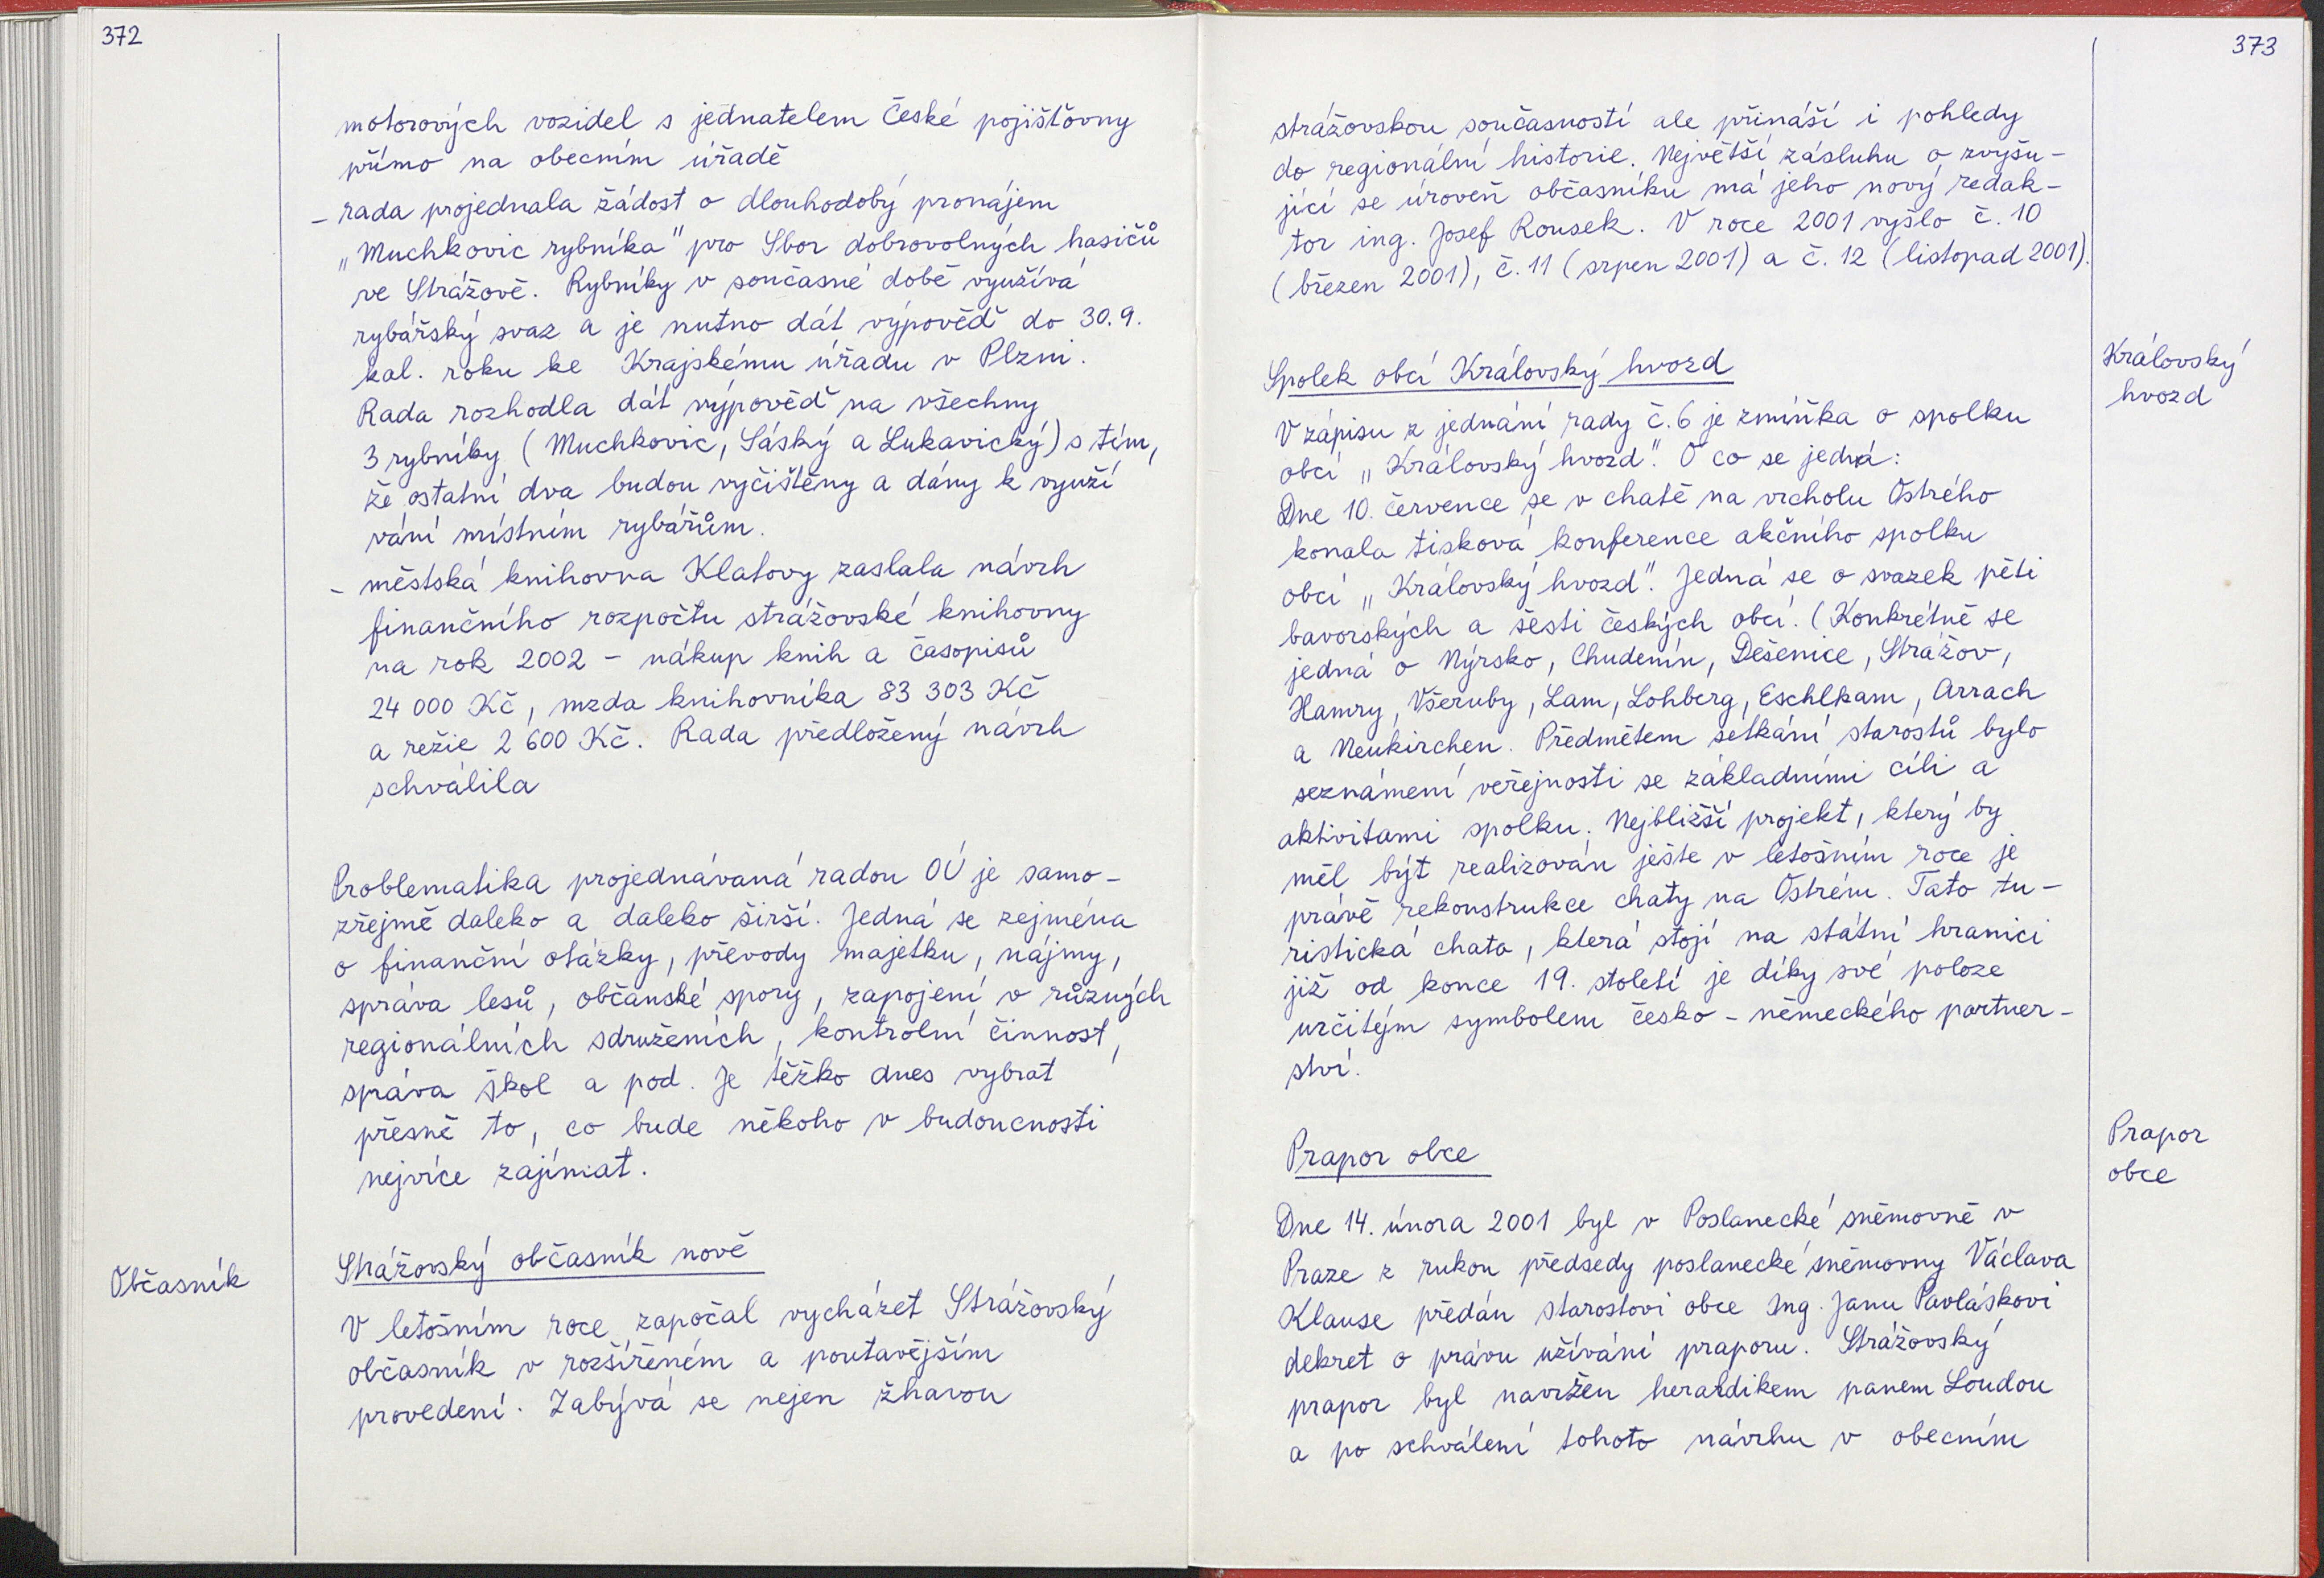 372
motorových vozidel s jednatelem České pojišťovny
přímo na obecním úřadě
- rada projednala žádost o dlouhodobý pronájem
„Muchkovic rybníka" pro Sbor dobrovolných hasičů
ve Strážově. Rybníky v současné době využívá
rybářský svaz a je nutno dát výpověď do 30.9.
kal. roku ke Krajskému úřadu v Plzni.
Rada rozhodla dát výpověď na všechny
3 rybníky (Muchkovic, Sáský a Lukavický) s tím,
že ostatní dva budou vyčištěny a dány k využí
vání místním rybářům.
- městská knihovna Klatovy zaslala návrh
finančního rozpočtu strážovské knihovny
na rok 2002 - nákup knih a časopisů
24 000 Kč, mzda knihovníka 83 303 Kč
a režie 2 600 Kč. Rada předložený návrh
schválila
Problematika projednávaná radou OÚ je samo-
zřejmě daleko a daleko širší. Jedná se zejména
o finanční otázky, převody majetku, nájmy,
správa lesů, občanské spory, zapojení v různých
regionálních sdruženích, kontrolní činnost,
správa škol a pod. Je těžko dnes vybrat
přesně to, co bude někoho v budoucnosti
nejvíce zajímat.
Občasník
Strážovský občasník nově
V letošním roce započal vycházet Strážovský
občasník v rozšířeném a poutavějším
provedení. Zabývá se nejen žhavou
373
strážovskou současností ale přináší i pohledy
do regionální historie. Největší zásluhu o zvyšu-
jící se úroveň občasníku má jeho nový redak-
tor ing. Josef Rousek. V roce 2001 vyšlo č. 10
(březen 2001), č. 11 (srpen 2001) a č. 12 (listopad 2001).
Královský
hvozd
Spolek obcí Královský hvozd
V zápisu z jednání rady č. 6 je zmíňka o spolku
obcí „Královský hvozd". O co se jedná:
Dne 10. července se v chatě na vrcholu Ostrého
konala tisková konference akčního spolku
obcí „Královský hvozd". Jedná se o svazek pěti
bavorských a šesti českých obcí. (Konkrétně se
jedná o Nýrsko, Chudenín, Dešenice, Strážov,
Hamry, Všeruby, Lam, Lohberg, Eschlkam, Arrach
a Neukirchen. Předmětem setkání starostů bylo
seznámení veřejnosti se základními cíli a
aktivitami spolku. Nejbližší projekt, který by
měl být realizován ješte v letošním roce je
právě rekonstrukce chaty na Ostrém. Tato tu-
ristická chata, která stojí na státní hranici
již od konce 19. století je díky své poloze
určitým symbolem česko - německého partner-
ství.
Prapor
obce
Prapor obce
Dne 14. února 2001 byl v Poslanecké sněmovně v
Praze z rukou předsedy poslanecké sněmovny Václava
Klause předán starostovi obce Ing. Janu Pavláskovi
dekret o právu užívání praporu. Strážovský
prapor byl navržen heraldikem panem Loudou
a po schválení tohoto návrhu v obecním